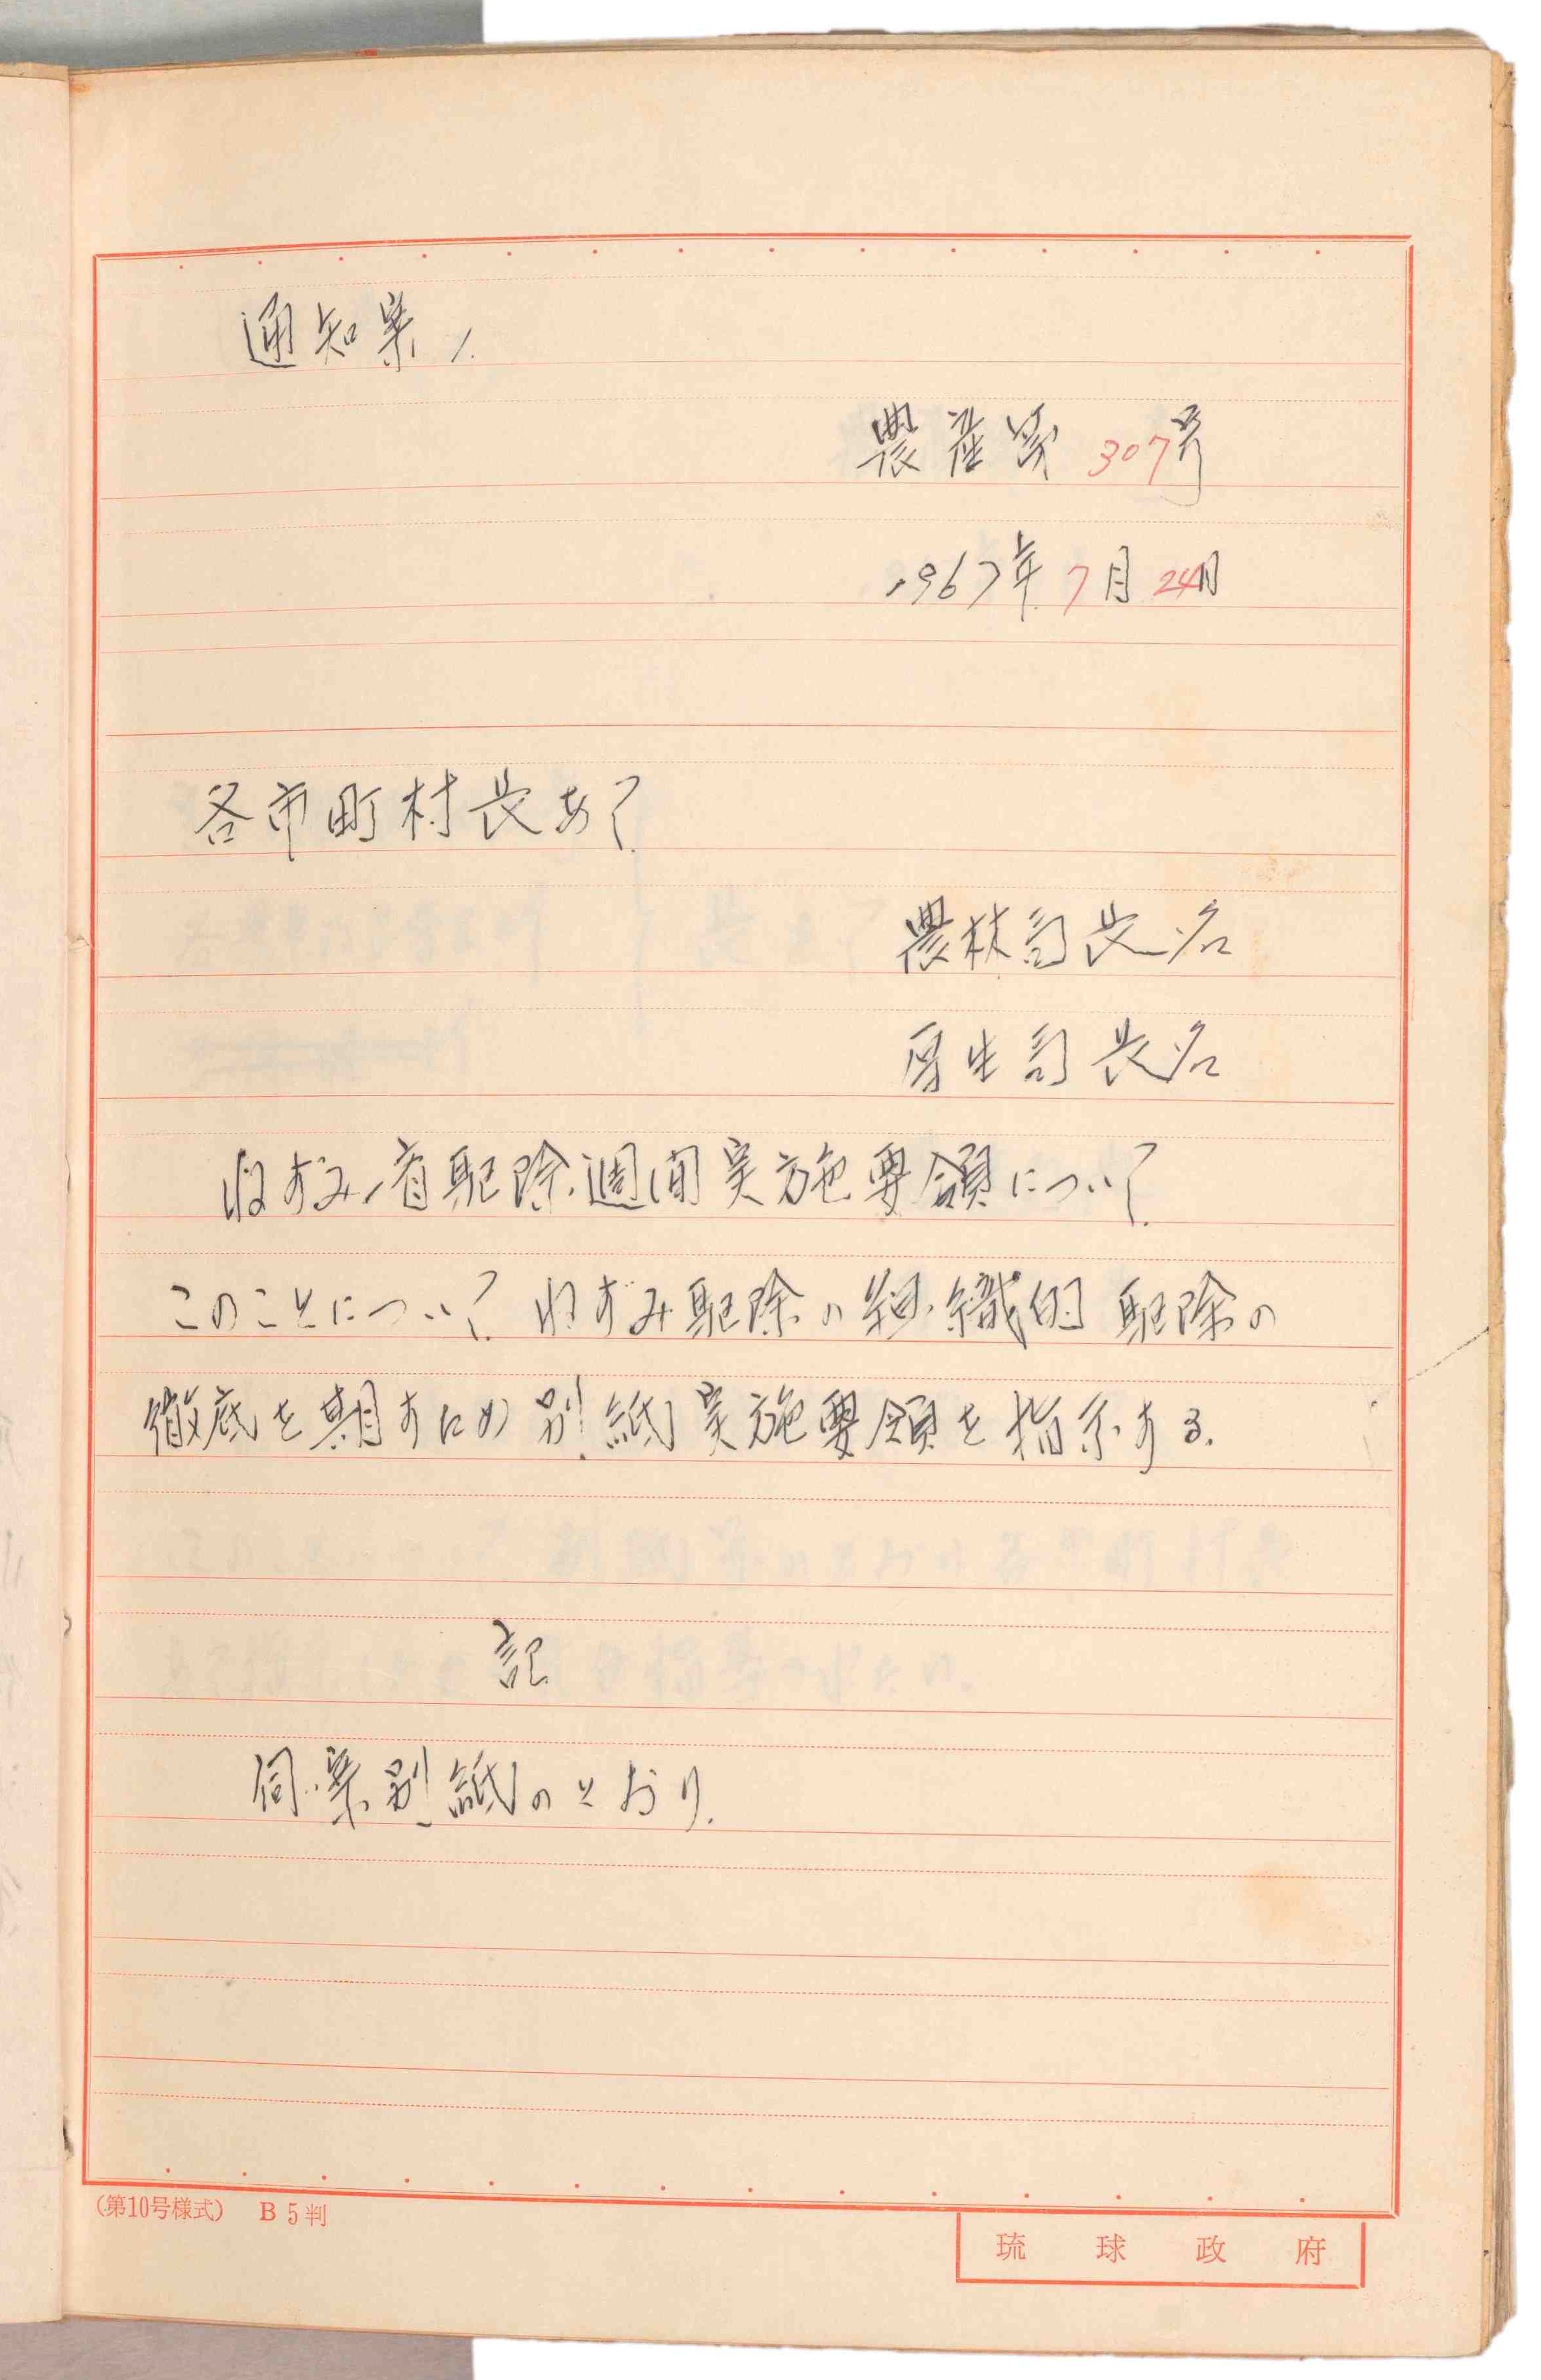 通知案1.
農産第307号
1967年7月24日
各市町村長あて
農林局長名
厚生局長名
ねずみ一斉駆除週間実施要領について
このことについて ねずみ駆除の組織的駆除の
徹底を期すため別紙実施要領を指示する.
記
伺案別紙のとおり.
(第10号様式) B5判
琉球政府